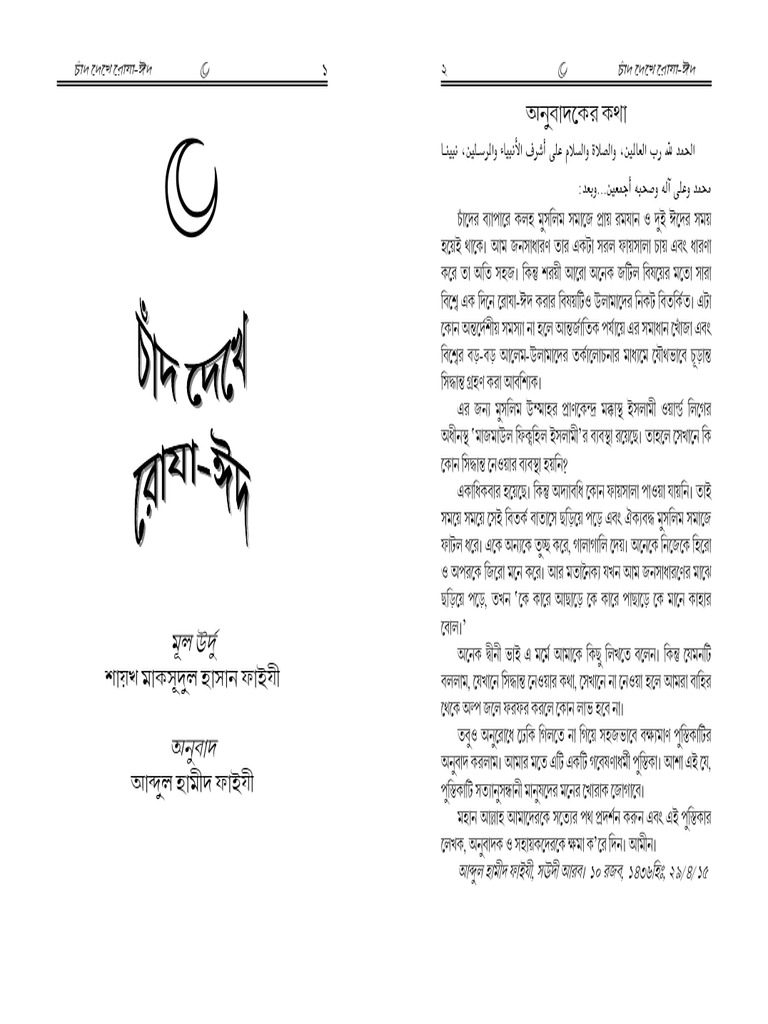 চাঁদ দেখে রোযা-ঈদ ১
চাঁদ দেখে
রোযা-ঈদ
মূল উর্দু
শায়খ মাকসূদুল হাসান ফাইযী
অনুবাদ
আব্দুল হামীদ ফাইযী
২ চাঁদ দেখে রোযা-ঈদ
অনুবাদকের কথা
الحمد لله رب العالمين، والصلاة والسلام على أشرف الأنبياء والمرسلين، نبينا
محمد وعلى آله وصحبه أجمعين...وبعد:
চাঁদের ব্যাপারে কলহ মুসলিম সমাজে প্রায় রমযান ও দুই ঈদের সময়
হয়েই থাকে। আম জনসাধারণ তার একটা সরল ফায়সালা চায় এবং ধারণা
করে তা অতি সহজ। কিন্তু শরয়ী আরো অনেক জটিল বিষয়ের মতো সারা
বিশ্বে এক দিনে রোযা-ঈদ করার বিষয়টিও উলামাদের নিকট বিতর্কিত। এটা
কোন অন্তর্দেশীয় সমস্যা না হলে আন্তর্জাতিক পর্যায়ে এর সমাধান খোঁজা এবং
বিশ্বের বড়-বড় আলেম-উলামাদের তর্কালোচনার মাধ্যমে যৌথভাবে চূড়ান্ত
সিদ্ধান্ত গ্রহণ করা আবশ্যিক।
এর জন্য মুসলিম উম্মাহর প্রাণকেন্দ্র মক্কাস্থ ইসলামী ওয়ার্ল্ড লিগের
অধীনস্থ ‘মাজমাউল ফিক্বহিল ইসলামী’র ব্যবস্থা রয়েছে। তাহলে সেখানে কি
কোন সিদ্ধান্ত নেওয়ার ব্যবস্থা হয়নি?
একাধিকবার হয়েছে। কিন্তু অদ্যাবধি কোন ফায়সালা পাওয়া যায়নি। তাই
সময়ে সময়ে সেই বিতর্ক বাতাসে ছড়িয়ে পড়ে এবং ঐক্যবদ্ধ মুসলিম সমাজে
ফাটল ধরে। একে অন্যকে তুচ্ছ করে, গালাগালি দেয়। অনেকে নিজেকে হিরো
ও অপরকে জিরো মনে করে। আর মতানৈক্য যখন আম জনসাধারণের মাঝে
ছড়িয়ে পড়ে, তখন ‘কে কারে আছাড়ে কে কারে পাছাড়ে কে মানে কাহার
বোল।’
অনেক দ্বীনী ভাই এ মর্মে আমাকে কিছু লিখতে বলেন। কিন্তু যেমনটি
বললাম, যেখানে সিদ্ধান্ত নেওয়ার কথা, সেখানে না নেওয়া হলে আমরা বাহির
থেকে অল্প জলে ফরফর করলে কোন লাভ হবে না।
তবুও অনুরোধে ঢেঁকি গিলতে না গিয়ে সহজভাবে বক্ষ্যমাণ পুস্তিকাটির
অনুবাদ করলাম। আমার মতে এটি একটি গবেষণাধর্মী পুস্তিকা। আশা এই যে,
পুস্তিকাটি সত্যানুসন্ধানী মানুষদের মনের খোরাক জোগাবে।
মহান আল্লাহ আমাদেরকে সত্যের পথ প্রদর্শন করুন এবং এই পুস্তিকার
লেখক, অনুবাদক ও সহায়কদেরকে ক্ষমা ক’রে দিন। আমীন।
আব্দুল হামীদ ফাইযী, সঊদী আরব। ১০ রজব, ১৪৩৬হিঃ, ২৯/৪/১৫